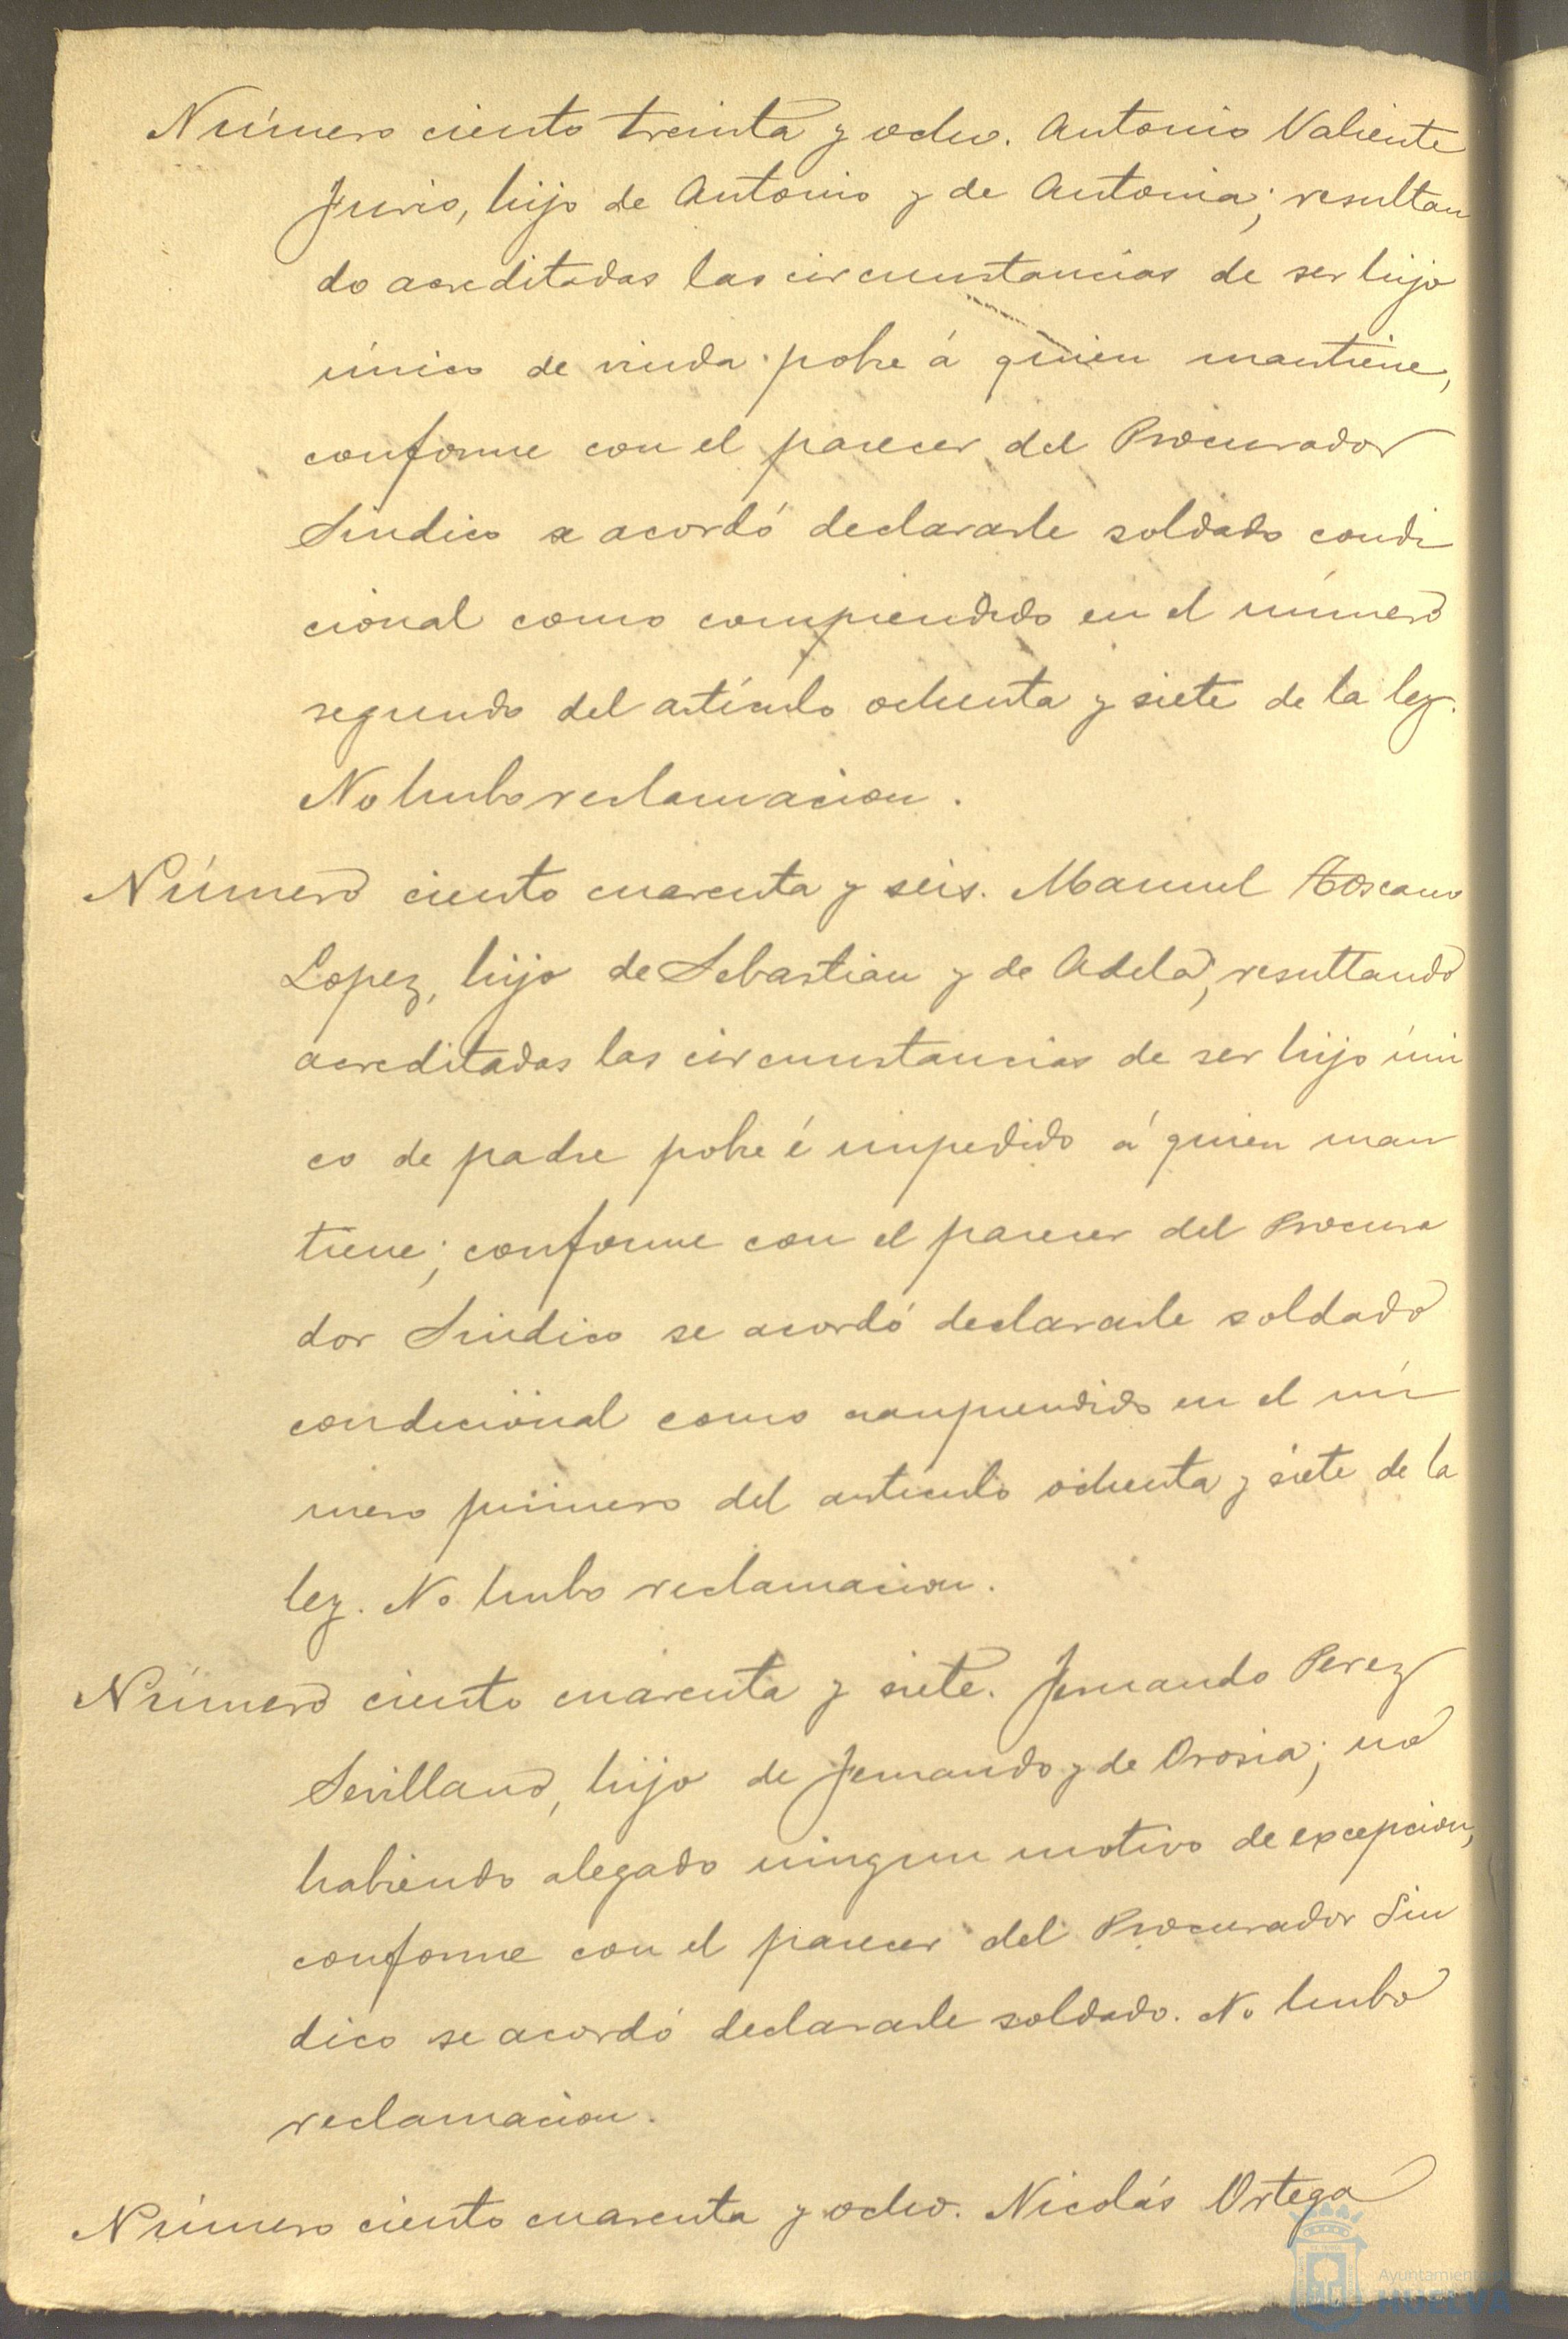 Número ciento treinta y ocho. Antonio Valiente
hijo de Antonio y de Antonia; resultan
do acreditadas las circunstancias de ser hijo
único de viuda pobre á quien mantiene,
conforme con el parecer del Procurador
Sindico se acordó declararle soldado condi
cional como comprendido en el número
segundo del artículo ochenta y siete de la ley.
No hubo reclamacion.
Número ciento cuarenta y seis. Manuel Toscano
Lopez, hijo de Sebastian y de Adela; resultando
acreditadas las circunstancias de ser hijo úni
co de padre pobre é impedido á quien man
tiene; conforme con el parecer del Procura
dor Sindico se acordó declararle soldado
condicional como comprendido en el nú
mero primero del articulo ochenta y siete de la
ley. No hubo reclamacion.
Número ciento cuarenta y siete. Fernando Perez
Sevillano, hijo de Fernando y de Orosia; no
habiendo alegado ningun motivo de excepcion,
conforme con el parecer del Procurador Sin
dico se acordó declararle soldado. No hubo
reclamacion.
Número ciento cuarenta y ocho. Nicolás Ortega
Ayuntamiento de
HUELVA